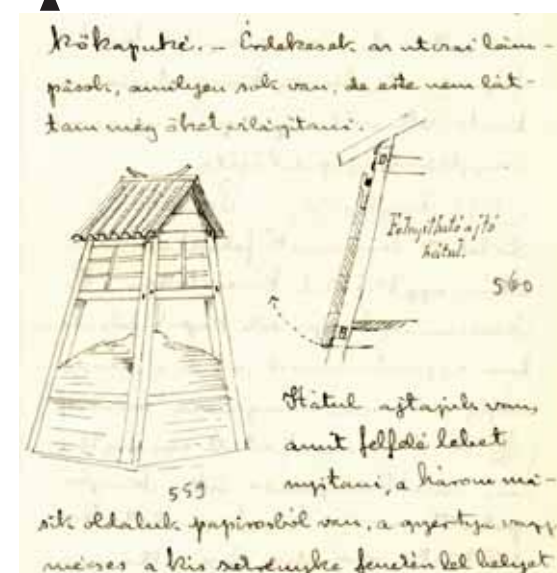 kőkapuké. – Érdekesek az utcai lám-
pások, amilyen sok van, de este nem lát-
tam még őket világitani.
Felnyitható ajtó
hátul.
560
Hátul ajtajuk van,
amit felfelé lehet
559
nyitani, a három má-
sik oldaluk papirosból van, a gyertya vagy
mécses a kis szekrényke fenekén lel helyet